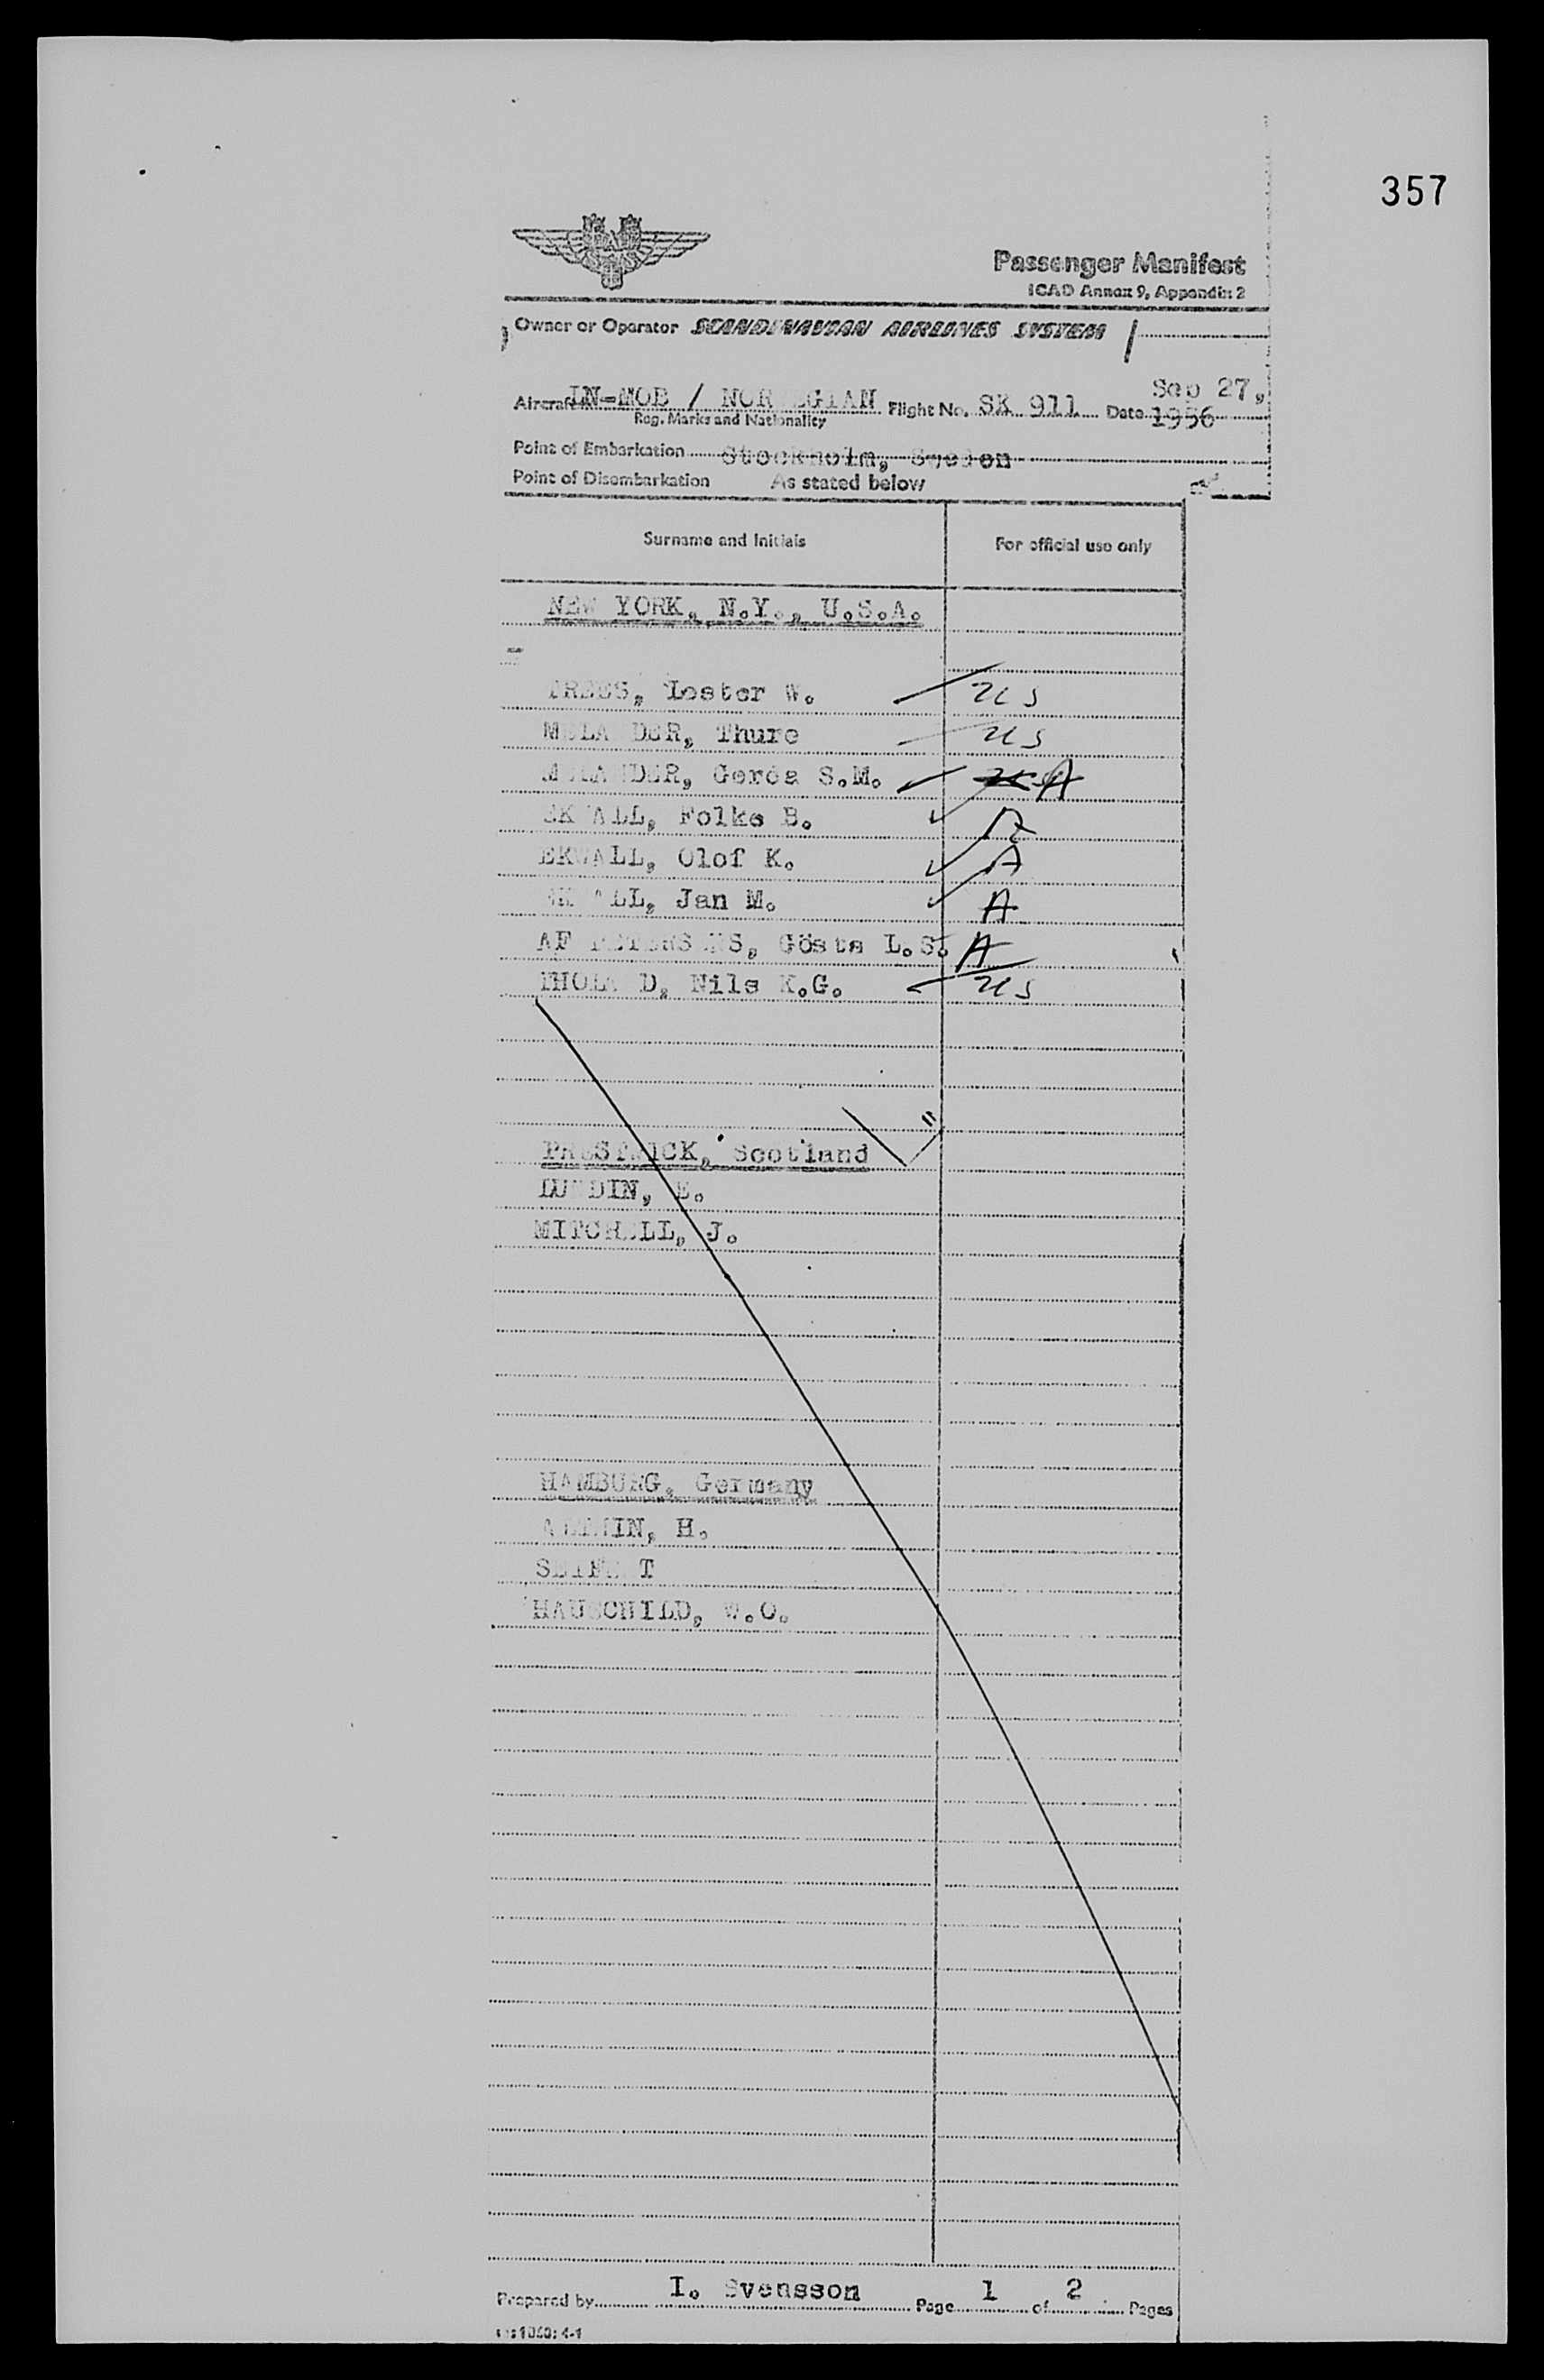 357
Passenger Manifest
ICAO Annex 9, Appendix 2
Owner or Operator SCANDINAVIAN AIRLINES SYSTEM
Aircraft LN-MOB / NORWEGIAN Flight No. SK 911 Date Sep 27, 1956
Reg. Marks and Nationality
Point of Embarkation Stockholm, Sweden
Point of Disembarkation As stated below
Surname and Initials For official use only
NEW YORK, N.Y., U.S.A.
Lester W. US
MELANDER, Thure US
MELANDER, Gerda S.M. A
EKWALL, Folke B. A
EKWALL, Olof K. A
EKWALL, Jan M. A
AF Gösta L.S. A
Nils K.G. US
PRESTWICK, Scotland
LUNDIN, E.
MITCHELL, J.
HAMBURG, Germany
H.
HAUSCHILD, W.O.
Prepared by I. Svensson Page 1 of 2 Pages